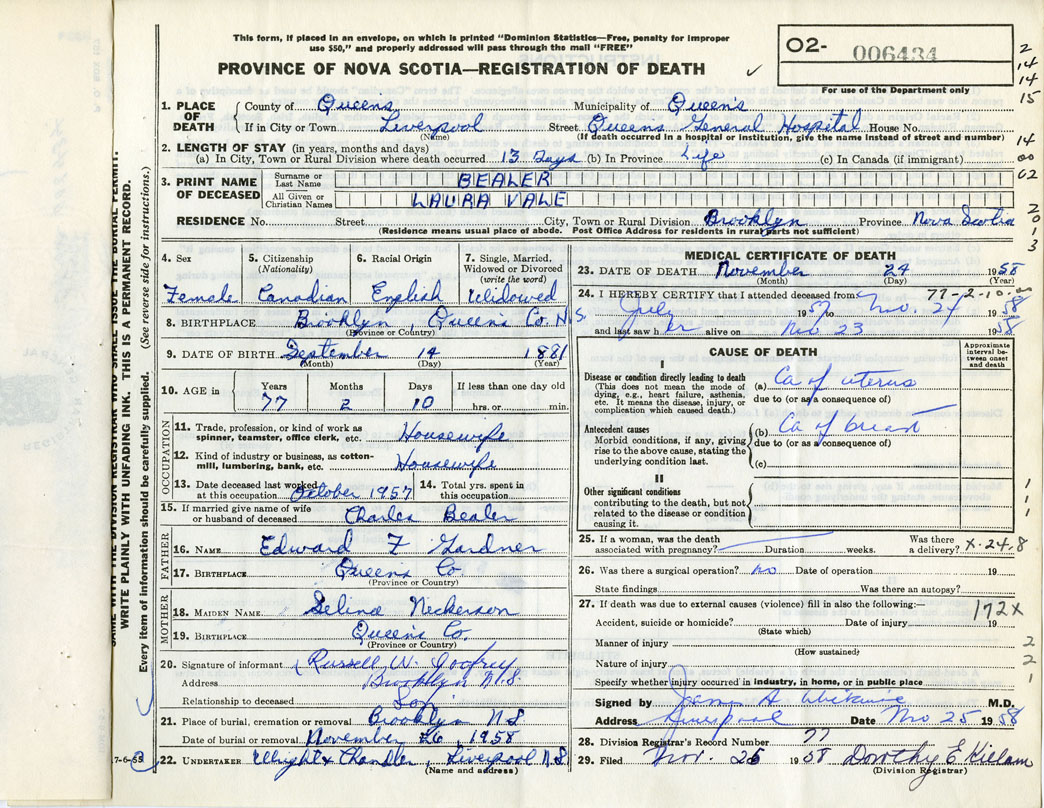 This form, if placed in an envelope, on which is printed "Dominion Statistics—Free, penalty for improper
use $50," and properly addressed will pass through the mail "FREE"
PROVINCE OF NOVA SCOTIA—REGISTRATION OF DEATH ✓
O2- 006434
For use of the Department only
2
14
14
15
14
00
02
2
0
1
3
1. PLACE OF DEATH
County of Queens Municipality of Queen's
If in City or Town Liverpool Street Queens General Hospital House No.
(Name) (If death occurred in a hospital or institution, give the name instead of street and number)
2. LENGTH OF STAY (in years, months and days)
(a) In City, Town or Rural Division where death occurred 13 Days (b) In Province Life (c) In Canada (if immigrant)
3. PRINT NAME OF DECEASED
Surname or Last Name BEALER
All Given or Christian Names LAURA VALE
RESIDENCE No. Street City, Town or Rural Division Brooklyn Province Nova Scotia
(Residence means usual place of abode. Post Office Address for residents in rural parts not sufficient)
4. Sex
Female
5. Citizenship (Nationality)
Canadian
6. Racial Origin
English
7. Single, Married, Widowed or Divorced (write the word)
Widowed
8. BIRTHPLACE Brooklyn, Queen's Co. N.S.
(Province or Country)
9. DATE OF BIRTH September 14 1881
(Month) (Day) (Year)
10. AGE in Years Months Days If less than one day old
77 2 10 hrs. or min.
OCCUPATION
11. Trade, profession, or kind of work as spinner, teamster, office clerk, etc. Housewife
12. Kind of industry or business, as cotton-mill, lumbering, bank, etc. Housewife
13. Date deceased last worked at this occupation October 1957
14. Total yrs. spent in this occupation
15. If married give name of wife or husband of deceased Charles Bealer
FATHER
16. NAME Edward F Gardner
17. BIRTHPLACE Queen's Co.
(Province or Country)
MOTHER
18. MAIDEN NAME Selina Neckerson
19. BIRTHPLACE Queen's Co.
(Province or Country)
20. Signature of informant Russell W. Godfrey
Address Brooklyn N.S.
Relationship to deceased Son
21. Place of burial, cremation or removal Brooklyn N.S
Date of burial or removal November 26, 1958
22. UNDERTAKER Wright & Chandler, Liverpool N.S.
(Name and address)
MEDICAL CERTIFICATE OF DEATH
23. DATE OF DEATH November 24 1958
(Month) (Day) (Year)
77-2-10-
24. I HEREBY CERTIFY that I attended deceased from:
July 1957 to Nov. 24 1958
and last saw her alive on Nov 23 1958
CAUSE OF DEATH
Approximate interval between onset and death
I
Disease or condition directly leading to death
(This does not mean the mode of dying, e.g., heart failure, asthenia, etc. It means the disease, injury, or complication which caused death.)
(a) Ca of uterus
due to (or as a consequence of)
Antecedent causes
Morbid conditions, if any, giving rise to the above cause, stating the underlying condition last.
(b) Ca of breast
due to (or as a consequence of)
(c)
II
Other significant conditions
contributing to the death, but not related to the disease or condition causing it.
1
1
1
25. If a woman, was the death associated with pregnancy? Duration weeks. Was there a delivery? X-24.8
26. Was there a surgical operation? no Date of operation 19
State findings Was there an autopsy?
27. If death was due to external causes (violence) fill in also the following:— 172X
Accident, suicide or homicide? Date of injury 19
(State which)
Manner of injury 2
(How sustained)
Nature of injury 2
Specify whether injury occurred in industry, in home, or in public place 1
Signed by M.D.
Address Liverpool Date Nov 25 1958
28. Division Registrar's Record Number 77
29. Filed Nov. 25 1958 Dorothy E Killam
(Division Registrar)
WRITE PLAINLY WITH UNFADING INK. THIS IS A PERMANENT RECORD.
Every item of information should be carefully supplied. (See reverse side for instructions.)
7-6-55